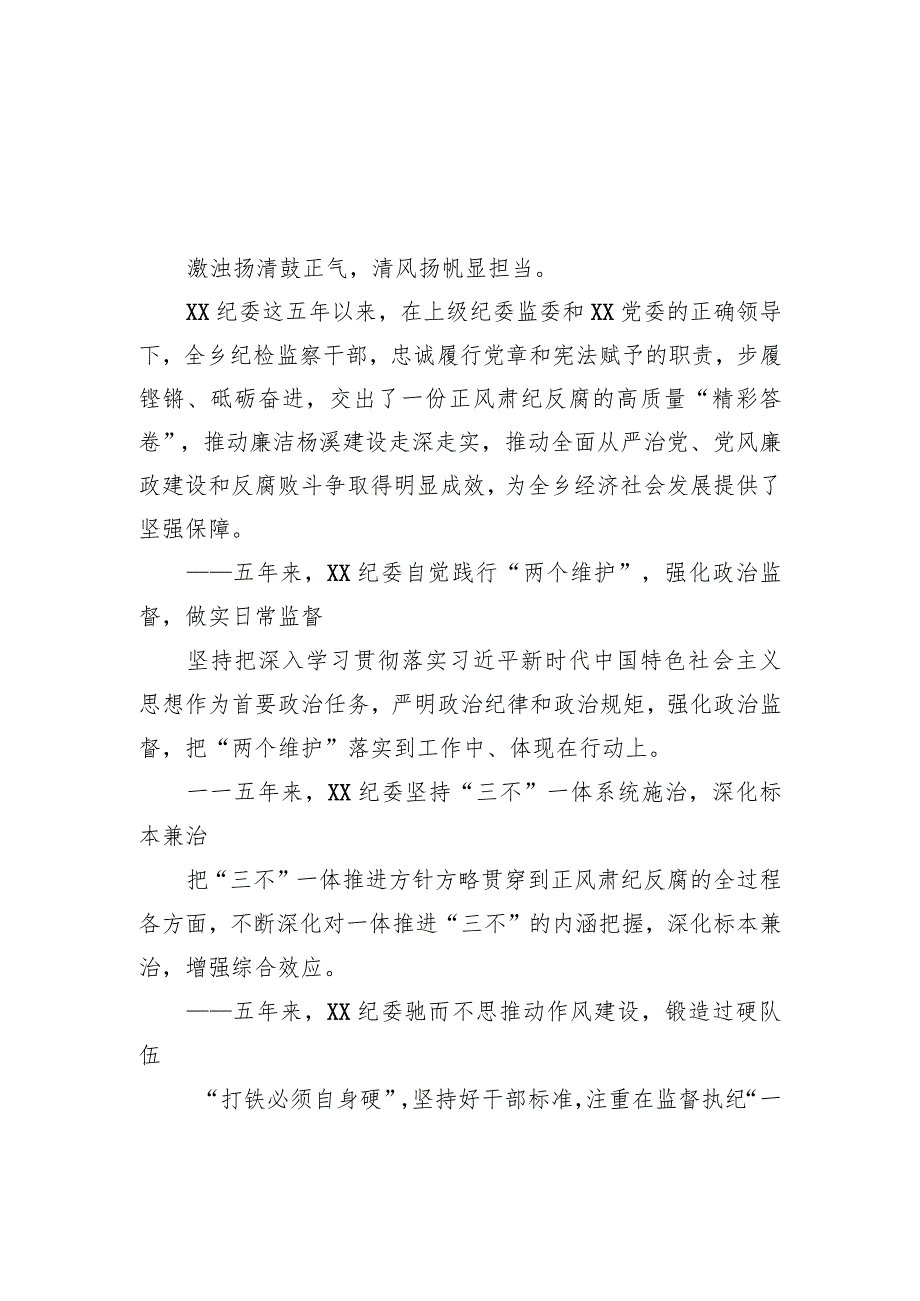 激浊扬清鼓正气，清风扬帆显担当。
XX纪委这五年以来，在上级纪委监委和XX党委的正确领导
下，全乡纪检监察干部，忠诚履行党章和宪法赋予的职责，步履
铿锵、砥砺奋进，交出了一份正风肃纪反腐的高质量“精彩答
卷”，推动廉洁杨溪建设走深走实，推动全面从严治党、党风廉
政建设和反腐败斗争取得明显成效，为全乡经济社会发展提供了
坚强保障。
——五年来，XX纪委自觉践行“两个维护”，强化政治监
督，做实日常监督
坚持把深入学习贯彻落实习近平新时代中国特色社会主义
思想作为首要政治任务，严明政治纪律和政治规矩，强化政治监
督，把“两个维护”落实到工作中、体现在行动上。
一一五年来，XX纪委坚持“三不”一体系统施治，深化标
本兼治
把“三不”一体推进方针方略贯穿到正风肃纪反腐的全过程
各方面，不断深化对一体推进“三不”的内涵把握，深化标本兼
治，增强综合效应。
——五年来，XX纪委驰而不思推动作风建设，锻造过硬队
伍
“打铁必须自身硬”，坚持好干部标准，注重在监督执纪“一